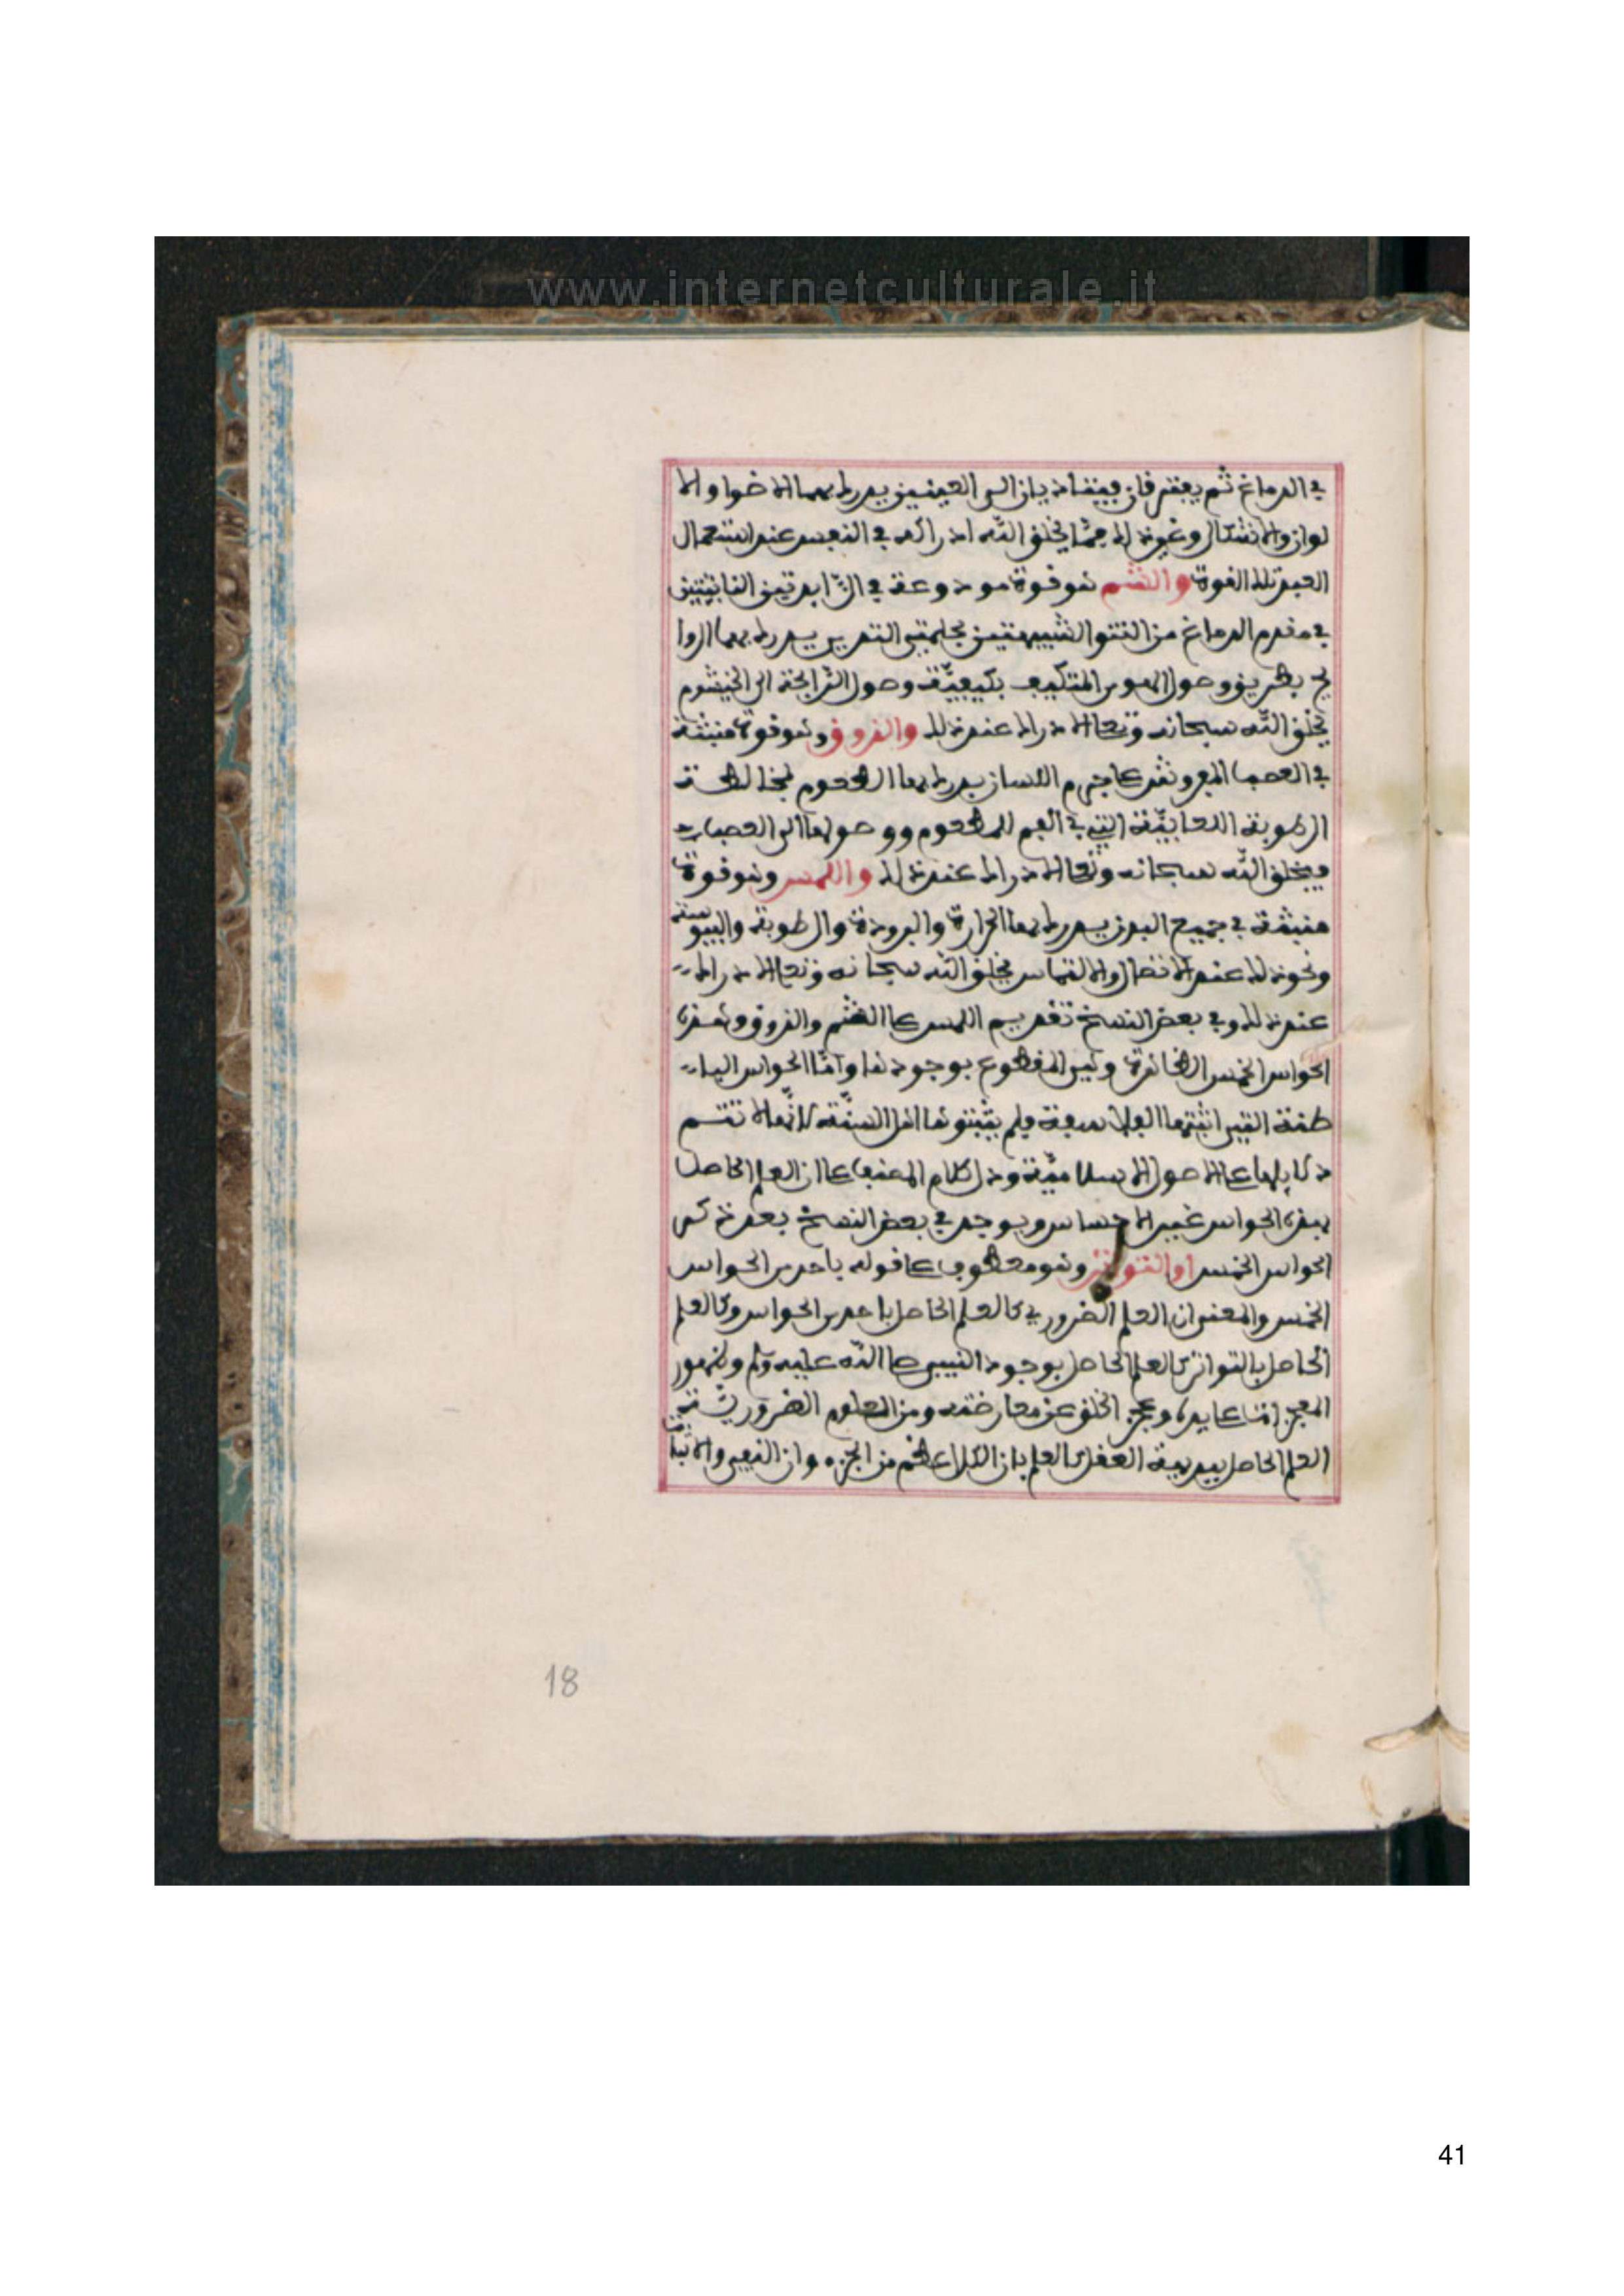 www.internetculturale.it
في الدماغ ثم يفترقان فيتاديان الى العينين يدرك بهما الاضوا والا
لوان والاشكال وغير ذلك مما يخلق الله ادراكه في النفس عند استعمال
العبد تلك القوة والشم هو قوة مودوعة في الزايدتين النابتتين
في مقدم الدماغ من النتو الشبيهتين بحلمتي الثديين يدرك بهما الروا
يح بطريق وصول الهوى المتكيف بكيفيّة وصول الرّايحة الى الخيشوم
يخلق الله سبحانه وتعالى الادراك عند ذلك والذوق وهو قوة منبثة
في العصب المفروش على جرم اللسان يدرك بها الطعوم لمخالطة
الرطوبة اللعابيّة التي في الفم للمطعوم ووصولها الى العصب
فيخلق الله سبحانه وتعالى الادراك عند ذلك واللمس وهو قوة
منبثة في جميع البدن يدرك بها الحرارة والبرودة والرطوبة واليبوسة
ونحو ذلك عند الاتصال والالتماس يخلق الله سبحانه وتعالى الادراك
عند ذلك وفي بعض النسخ تقديم اللمس على الشم والذوق وهذه
الحواس الخمس الظاهرة وهي المقطوع بوجودها وامّا الحواس البا
طنة التي اثبتها الفلاسفة فلم يثبتوها اهل السنّة لانّها لا تتم
دلايلها على الاصول الاسلاميّة ودل كلام المصنف على ان العلم الحاصل
بهذه الحواس غير الاحساس ويوجد في بعض النسخ بعد ذكر
الحواس الخمس او التواتر وهو معطوف على قوله باحدى الحواس
الخمس والمعنى ان العلم الضروري كالعلم الحاصل باحدى الحواس وكالعلم
الحاصل بالتواتر كالعلم الحاصل بوجود النبي صلى الله عليه وسلم وظهور
المعجزات على يده وعجز الخلق عن معارضته ومن العلوم الضروريّة
العلم الحاصل ببديهة العقل كالعلم بان الكل اعظم من الجزء وان النفي والاثبات
18
41